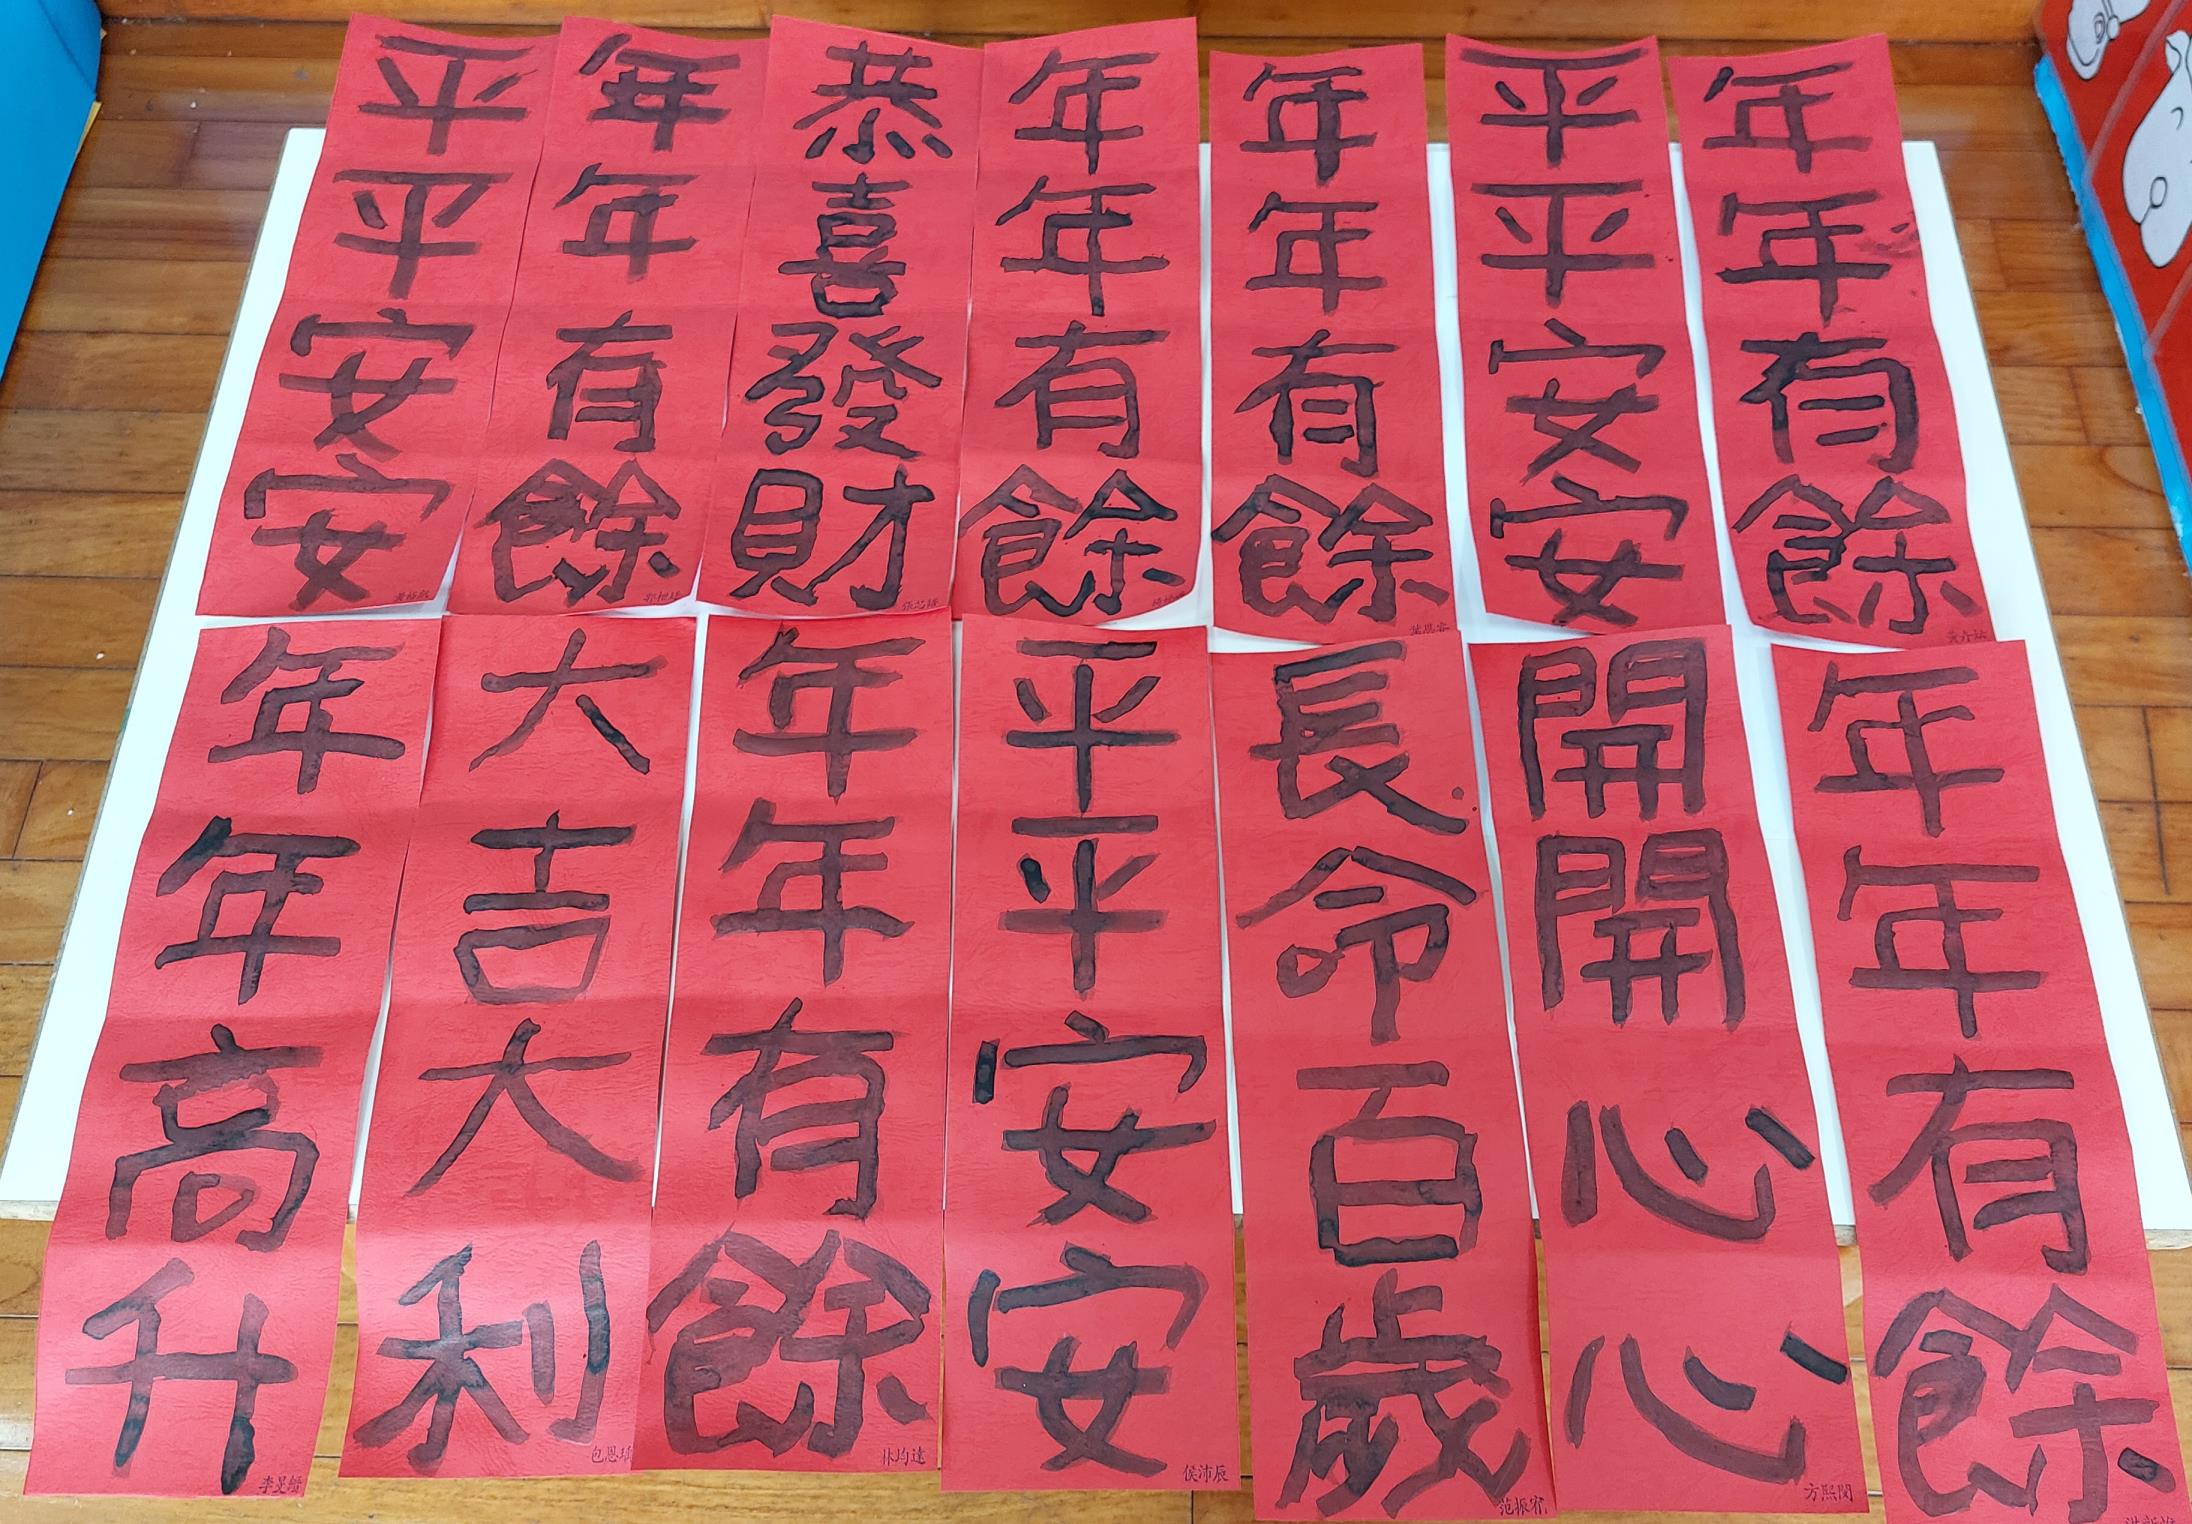 平平安安
年年有餘
恭喜發財
年年有餘
年年有餘
平平安安
年年有餘
年年高升
李旻縉
大吉大利
包恩瑄
年年有餘
林均達
平平安安
侯沛辰
長命百歲
范振宥
開開心心
方熙閔
年年有餘